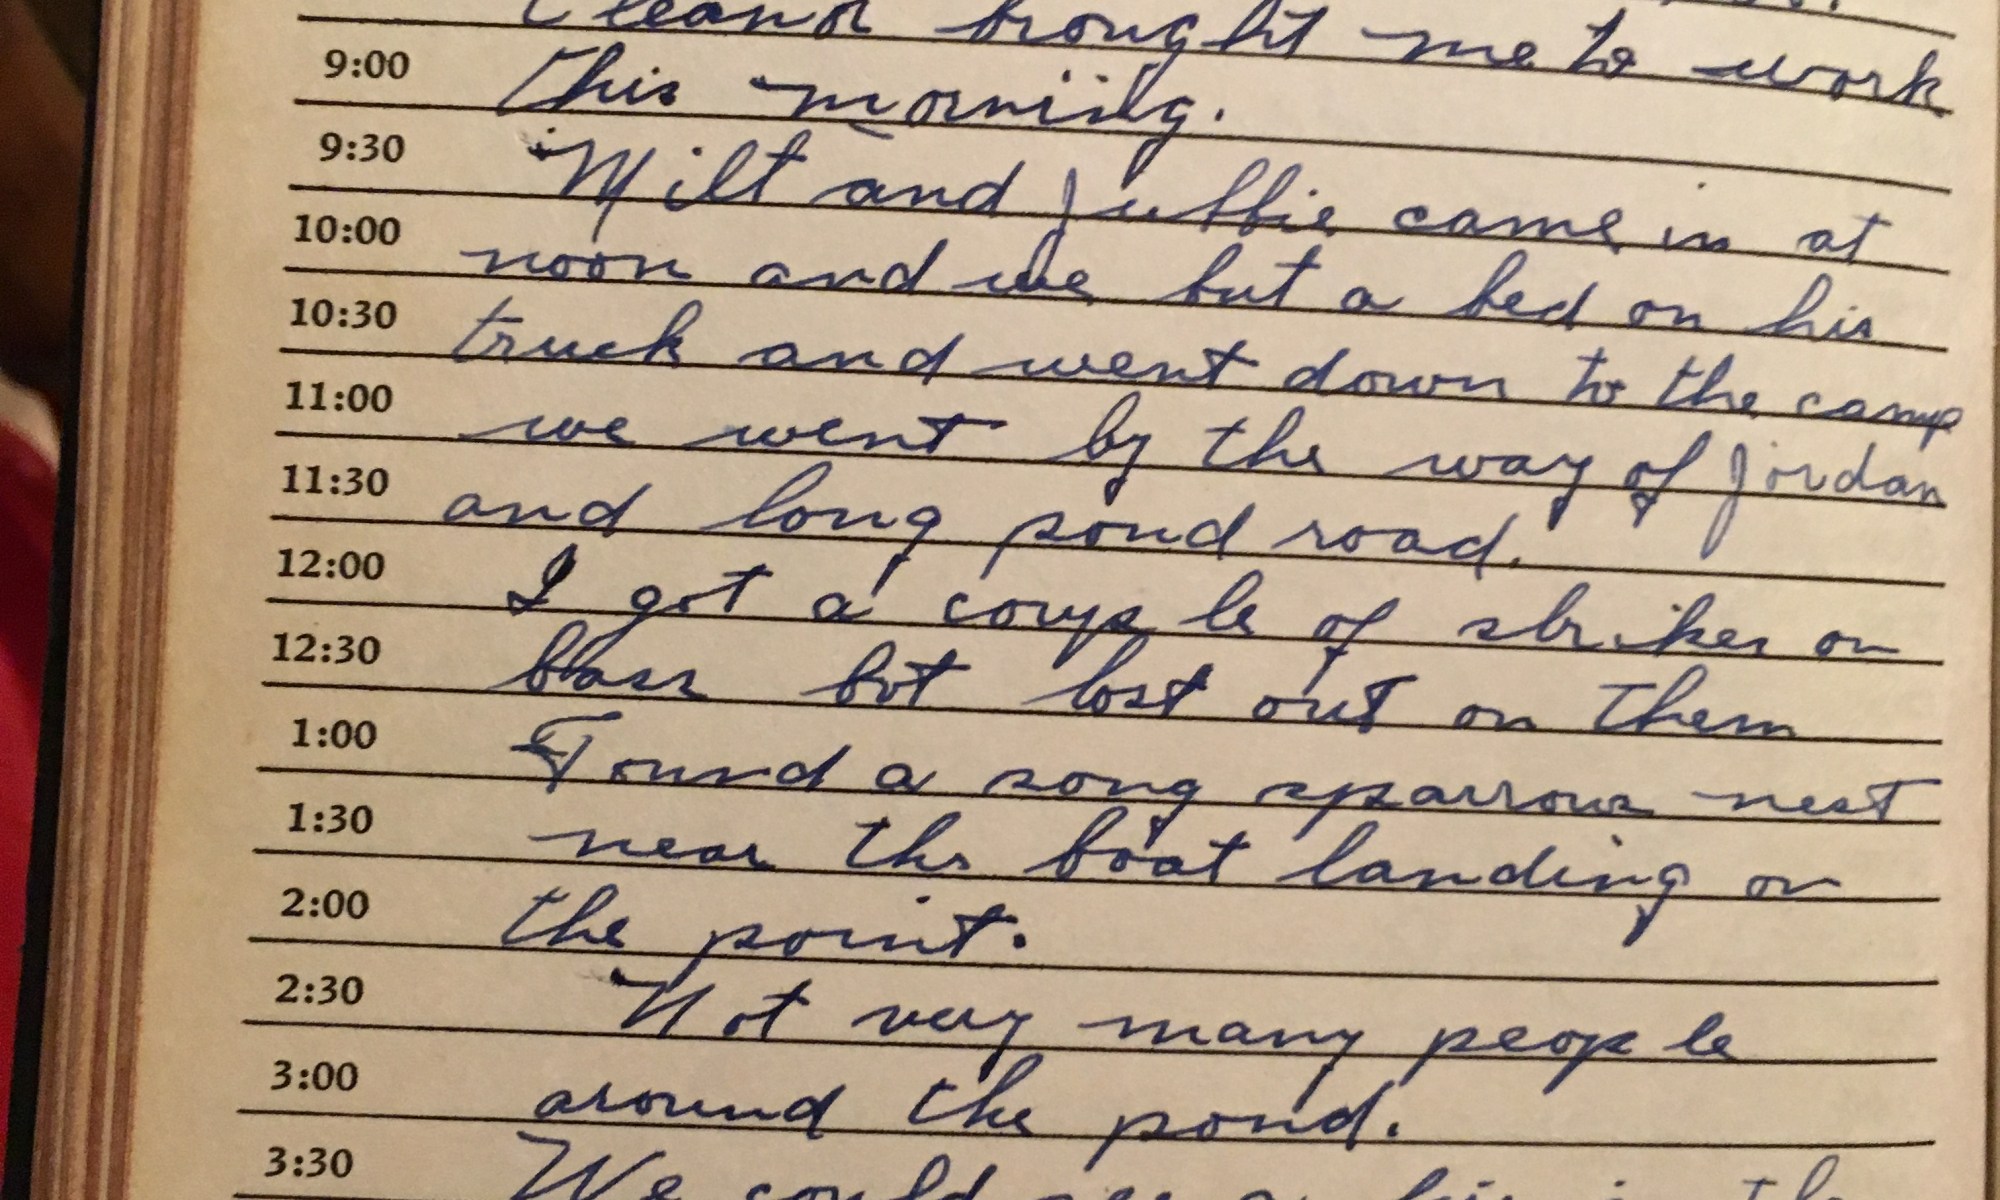 Eleanor brought me to work
9:00 this morning.
9:30 Milt and Juffie came in at
10:00 noon and we but a bed on his
10:30 truck and went down to the camp
11:00 we went by the way of Jordan
11:30 and long pond road.
12:00 I got a couple of strikes on
12:30 bass bot lost out on them
1:00 Found a song sparrows nest
1:30 near the boat landing on
2:00 the point.
2:30 Not very many people
3:00 around the pond.
3:30 We could see a in th